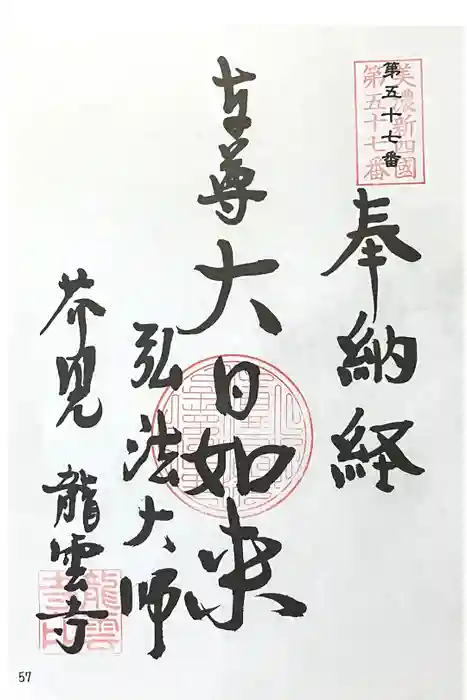 美濃新四國
第五十七番
第五十七番
奉納経
本尊大日如来
弘法大師
芥見龍雲寺
龍雲
寺印
57